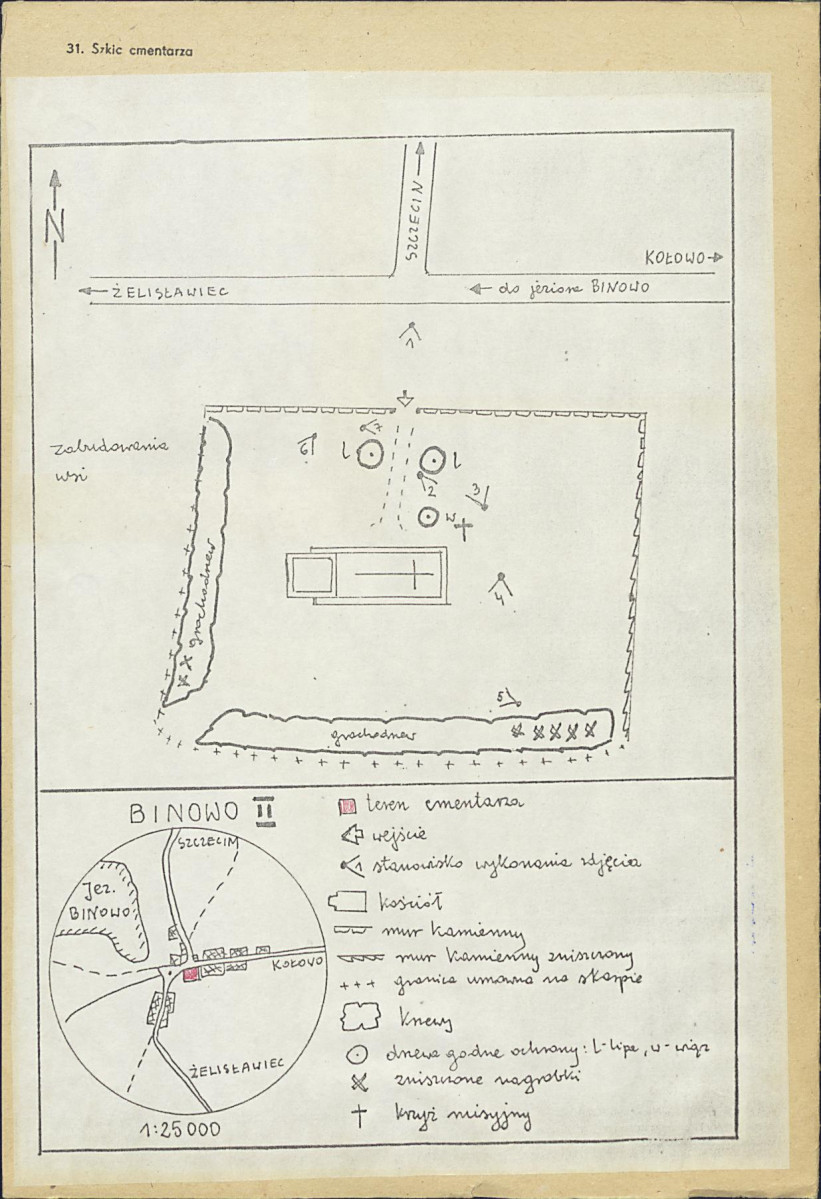 31. Szkic cmentarza
SZCZECIN
N
KOŁOWO
ŻELISŁAWIEC
do jeziora BINOWO
1
zabudowania
wsi
7
6
l
l
2
3
w
4
grochodrzew
5
grochodrzew
BINOWO II
SZCZECIN
Jez.
BINOWO
KOŁOWO
ŻELISŁAWIEC
1:25000
teren cmentarza
wejście
1 stanowisko wykonania zdjęcia
kościół
mur kamienny
mur kamienny zniszczony
granica umowna na skarpie
krzewy
drzewa godne ochrony: l-lipa, w-wiąz
zniszczone nagrobki
krzyż misyjny